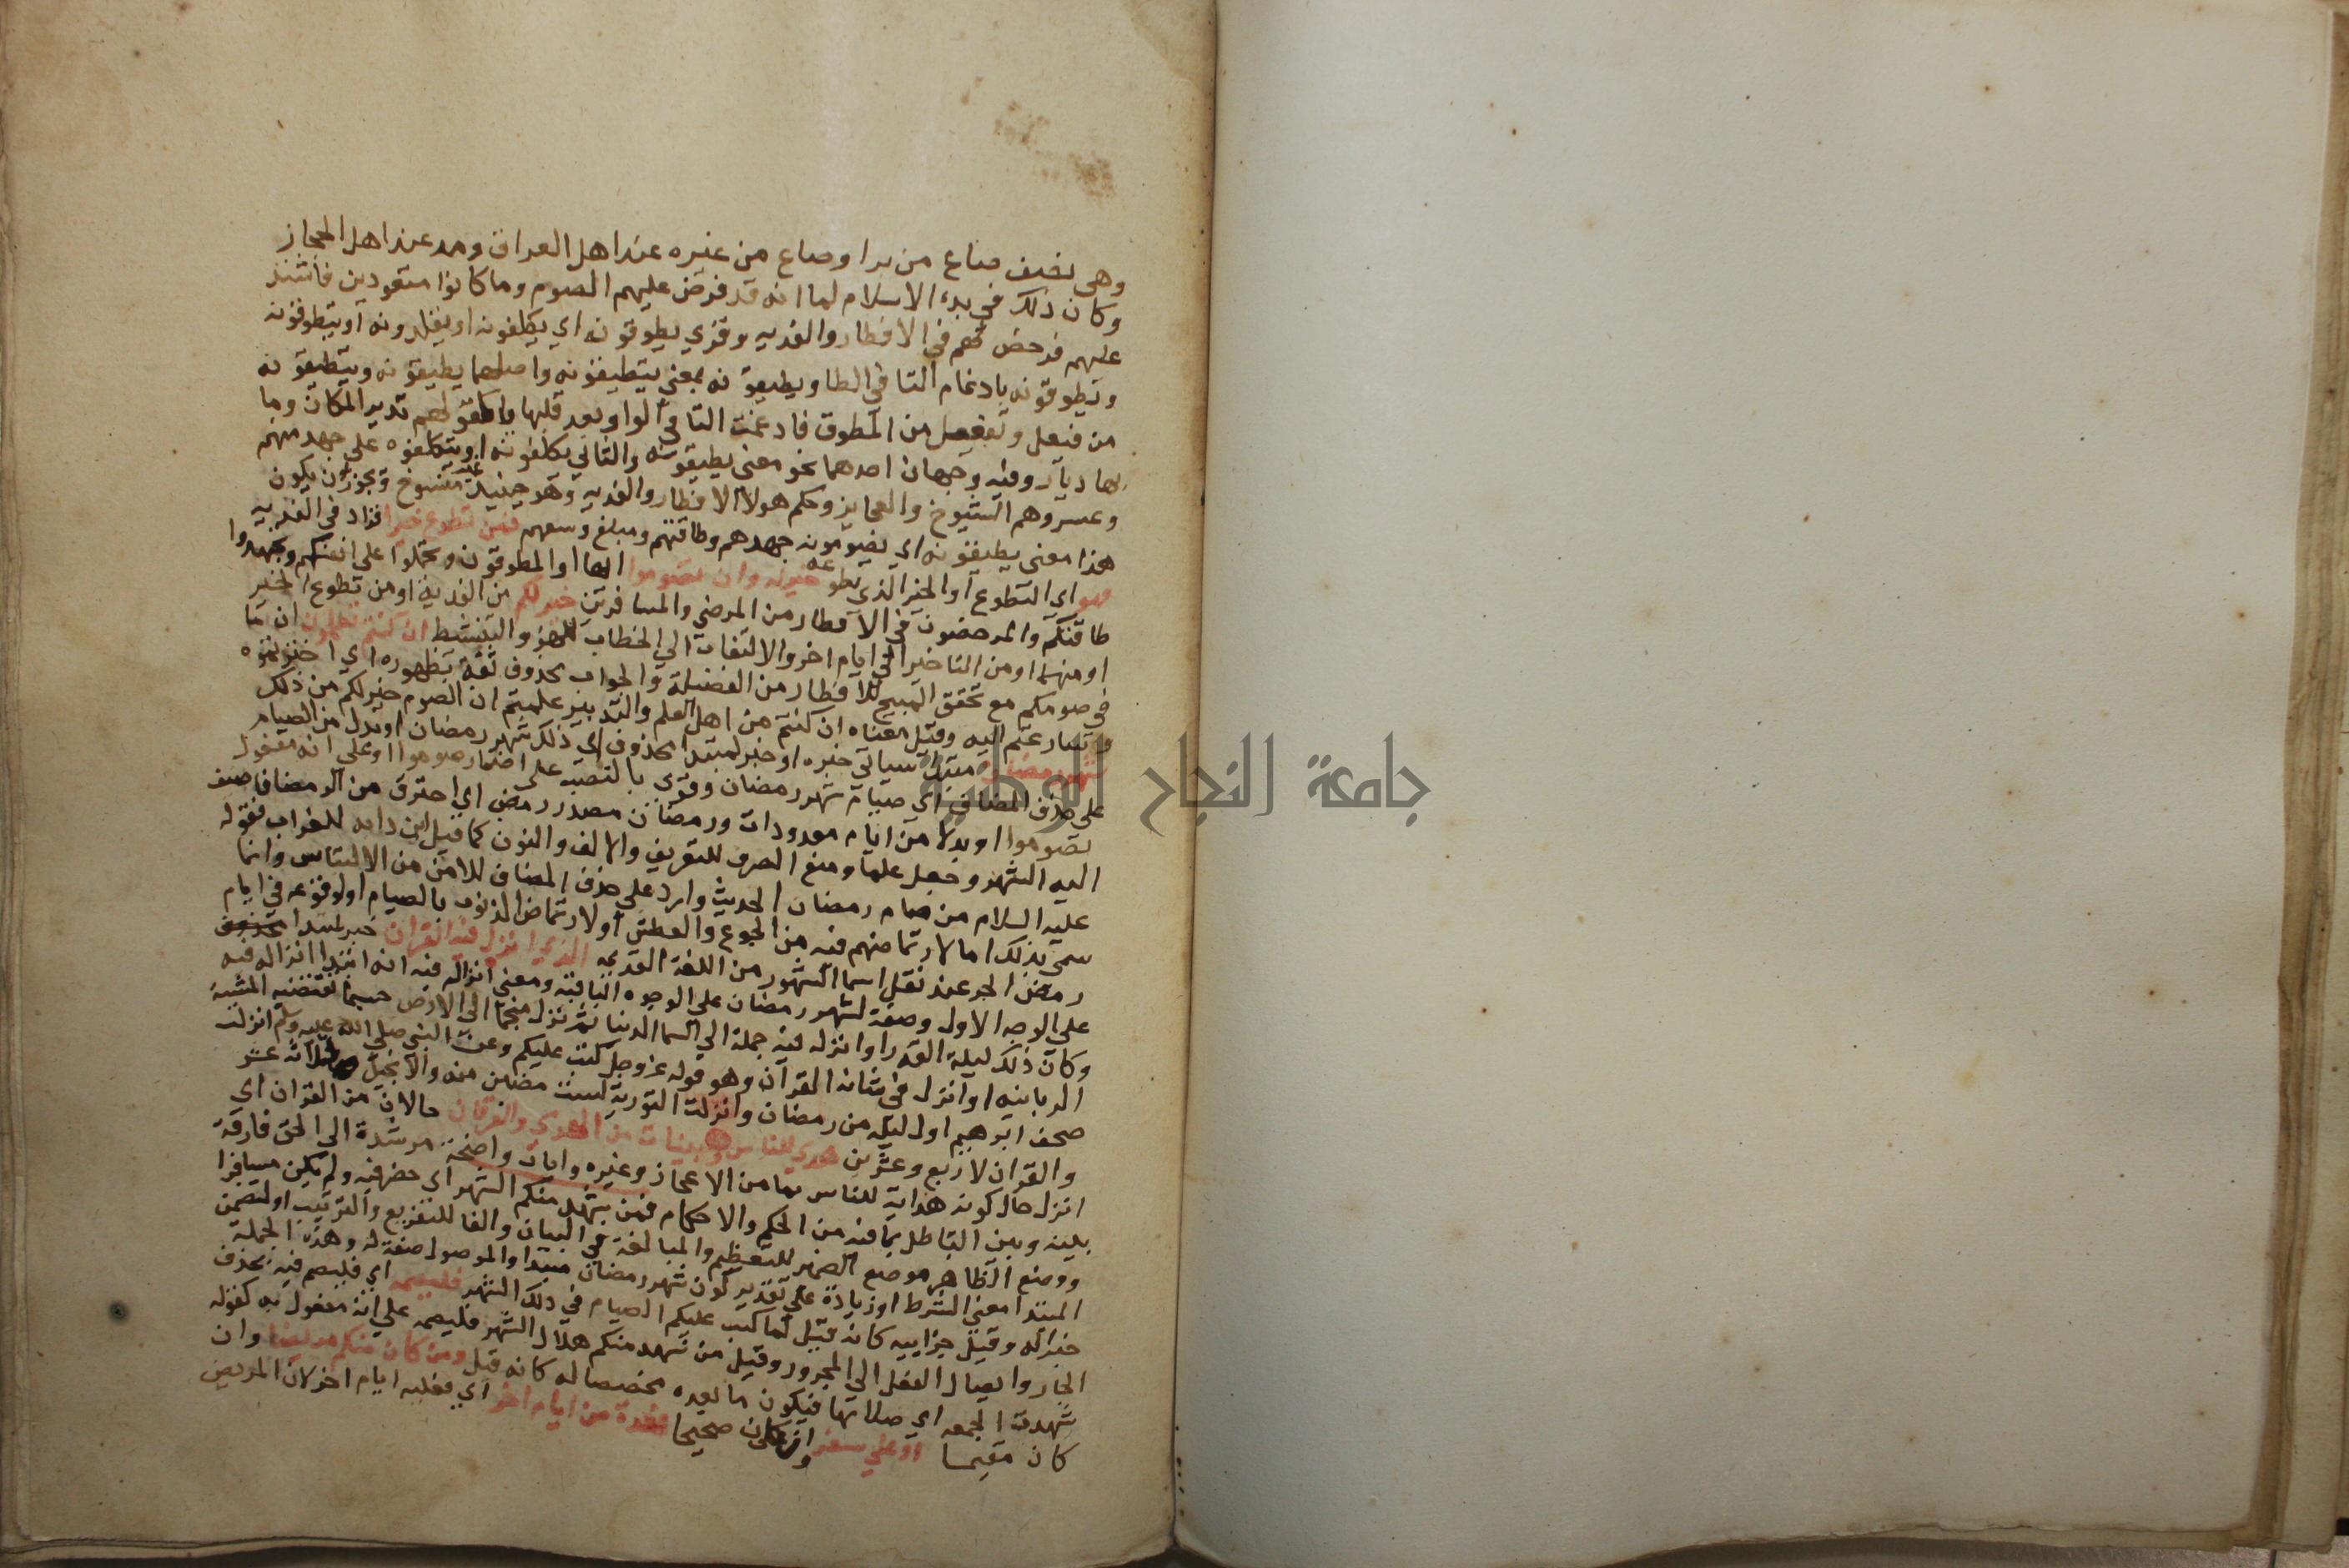 وهى نصف صاع من برا وصاع من غيره عند اهل العراق ومد عند اهل الحجاز
وكان ذلك في بدء الاسلام لما انه قد فرض عليهم الصوم وما كانوا متعودين فاشتد
عليهم فرخص لهم في الافطار والفديه وقرى يطوقونه اي يكلفونه او يقلدونه او يتطوقونه
ويطوقونه بادغام التا في الطا ويطيقونه بمعنى يتطيقونه واصلهما يطيوقونه ويتطيوقونه
من فيعل وتفيعل من الطوق فادغمت التا في الواو بعد قلبها ياء كقولهم تدير المكان وما
بها ديار وفيه وجهان احدهما نحو معنى يطيقونه والثاني يكلفونه او يتكلفونه على جهد منهم
وعسر وهم الشيوخ والعجايز وحكم هولا الافطار والفديه وهو حينيذ غير منسوخ ويجوز ان يكون
هذا معنى يطيقونه اي يصومونه جهدهم وطاقتهم ومبلغ وسعهم فمن تطوع خيرا فزاد في الفديه
فهو اي التطوع او الخير الذي تطوعه خير له وان تصوموا ايها المطوقون وتحملوا على انفسكم وتجهدوا
طاقتكم والمرخصون في الافطار من المرضى والمسافرين خير لكم من الفدية او من تطوع الخير
او منهما او من التاخير الى ايام اخر والالتفات الي الخطاب للهز والتنشيط ان كنتم تعلمون ان ما
في صومكم مع تحقق المبيح للافطار من الفضيلة والجواب محذوف ثقة بظهوره اي اخترتموه
وتسارعتم اليه وقيل معناه ان كنتم من اهل العلم والتدبير علمتم ان الصوم خير لكم من ذلك
شهر رمضان مبتدا سياتي خبره او خبر لمبتدا محذوف اي ذلك شهر رمضان او بدل من الصيام
على حذف المضاف اي صيام شهر رمضان وقرى بالنصب على اضمار صوموا او على انه مفعول
تصوموا او بدلا من ايام معدودات ورمضان مصدر رمض اي احترق من الرمضا فاضيف
اليه الشهر وجعل علما ومنع الصرف للتعريف والالف والنون كما قيل ابن دايه للغراب فقوله
عليه السلام من صام رمضان الحديث وارد على حذف المضاف للامن من الالتباس وانما
سمى بذلك اما لارتماضهم فيه من الجوع والعطش او لارتماض الذنوب بالصيام او لوقوعه في ايام
رمض الحر عند نقل اسما الشهور من اللغة القديمه الذي انزل فيه القران خبر لمبتدا
على الوجه الاول وصفة لشهر رمضان على الوجوه الباقية ومعنى انزاله فيه انه ابتدا انزاله فيه
وكان ذلك ليلة القدر او انزله فيه جملة الي السما الدنيا ثم نزل منجما الى الارض حسبما تقتضيه المشية
الربانيه او انزل في شانه القرآن وهو قوله عز وجل كتب عليكم وعن النبي صلى الله عليه وسلم انزلت
صحف ابرهيم اول ليله من رمضان وانزلت التورية لست مضين منه والانجيل لثلاثة عشر
والقران لاربع وعشرين هدى للناس وبينات من الهدى والفرقان حالان من القران اي
انزل حال كونه هداية للناس بما من الاعجاز وغيره وايات واضحة مرشدة الي الحق فارقة
بينه وبين الباطل بما فيه من الحكم والاحكام فمن شهد منكم الشهر اي حضر فيه ولم يكن مسافرا
ووضع الظاهر موضع الضمير للتعظيم والمبالغة في البيان والفا للتفريع والترتيب او لتضمن
المبتدا معنى الشرط او زيادة على تقدير كون شهر رمضان مبتدا والموصول صفة له وهذه الجملة
خبرا له وقيل جزاييه كانه قيل لما كتب عليكم الصيام في ذلك الشهر فليصمه اي فليصم فيه بحذف
الجار وايصال الفعل الي المجرور وقيل من شهد منكم هلال الشهر فليصمه على انه مفعول به كقوله
شهدت الجمعه اي صلاتها فيكون ما بعده مخصصا له كانه قيل ومن كان منكم مريضا وان
كان مقيما او على سفر وان كان صحيحا فعدة من ايام اخر اي فعليه ايام اخر لان المريض
جامعة النجاح الوطنية